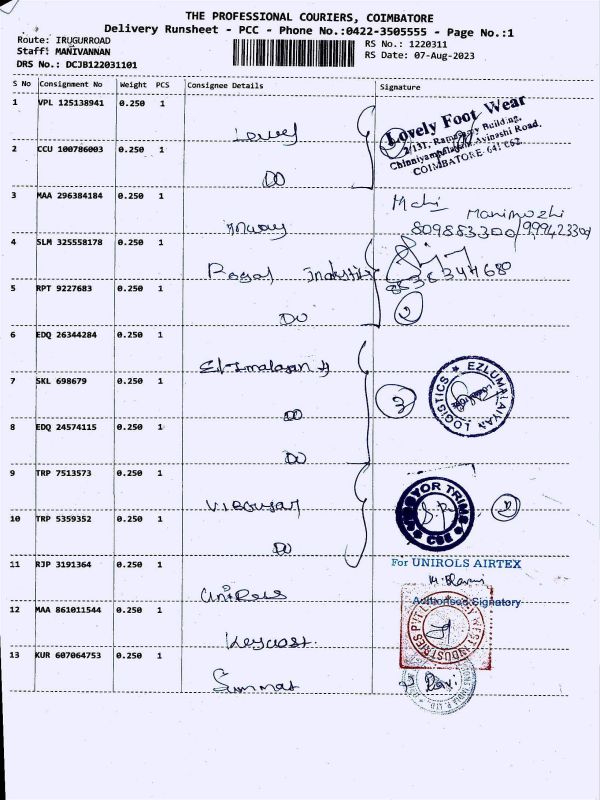 THE PROFESSIONAL COURIERS, COIMBATORE
Delivery Runsheet - PCC - Phone No.:0422-3505555 - Page No.:1
Route: IRUGURROAD
Staff: MANIVANNAN
DRS No.: DCJB122031101
RS No.: 1220311
RS Date: 07-Aug-2023
S No Consignment No Weight PCS Consignee Details Signature
1 VPL 125138941 0.250 1
Lovely Foot Wear
2/131, Building,
Avinashi Road,
COIMBATORE-641 062.
2 CCU 100786003 0.250 1
DO
3 MAA 296384184 0.250 1
Manimozhi
4 SLM 325558178 0.250 1
Royal
5 RPT 9227683 0.250 1
DO
2
6 EDQ 26344284 0.250 1
7 SKL 698679 0.250 1
DO
3
EZLUMALAIYAN LOGISTICS
8 EDQ 24574115 0.250 1
DO
9 TRP 7513573 0.250 1
YOR TRIM
CBE
2
10 TRP 5359352 0.250 1
DO
11 RJP 3191364 0.250 1
Unirols
For UNIROLS AIRTEX
Authorised Signatory
12 MAA 861011544 0.250 1
WEST INDUSTRIES PVT
13 KUR 607064753 0.250 1
Ravi